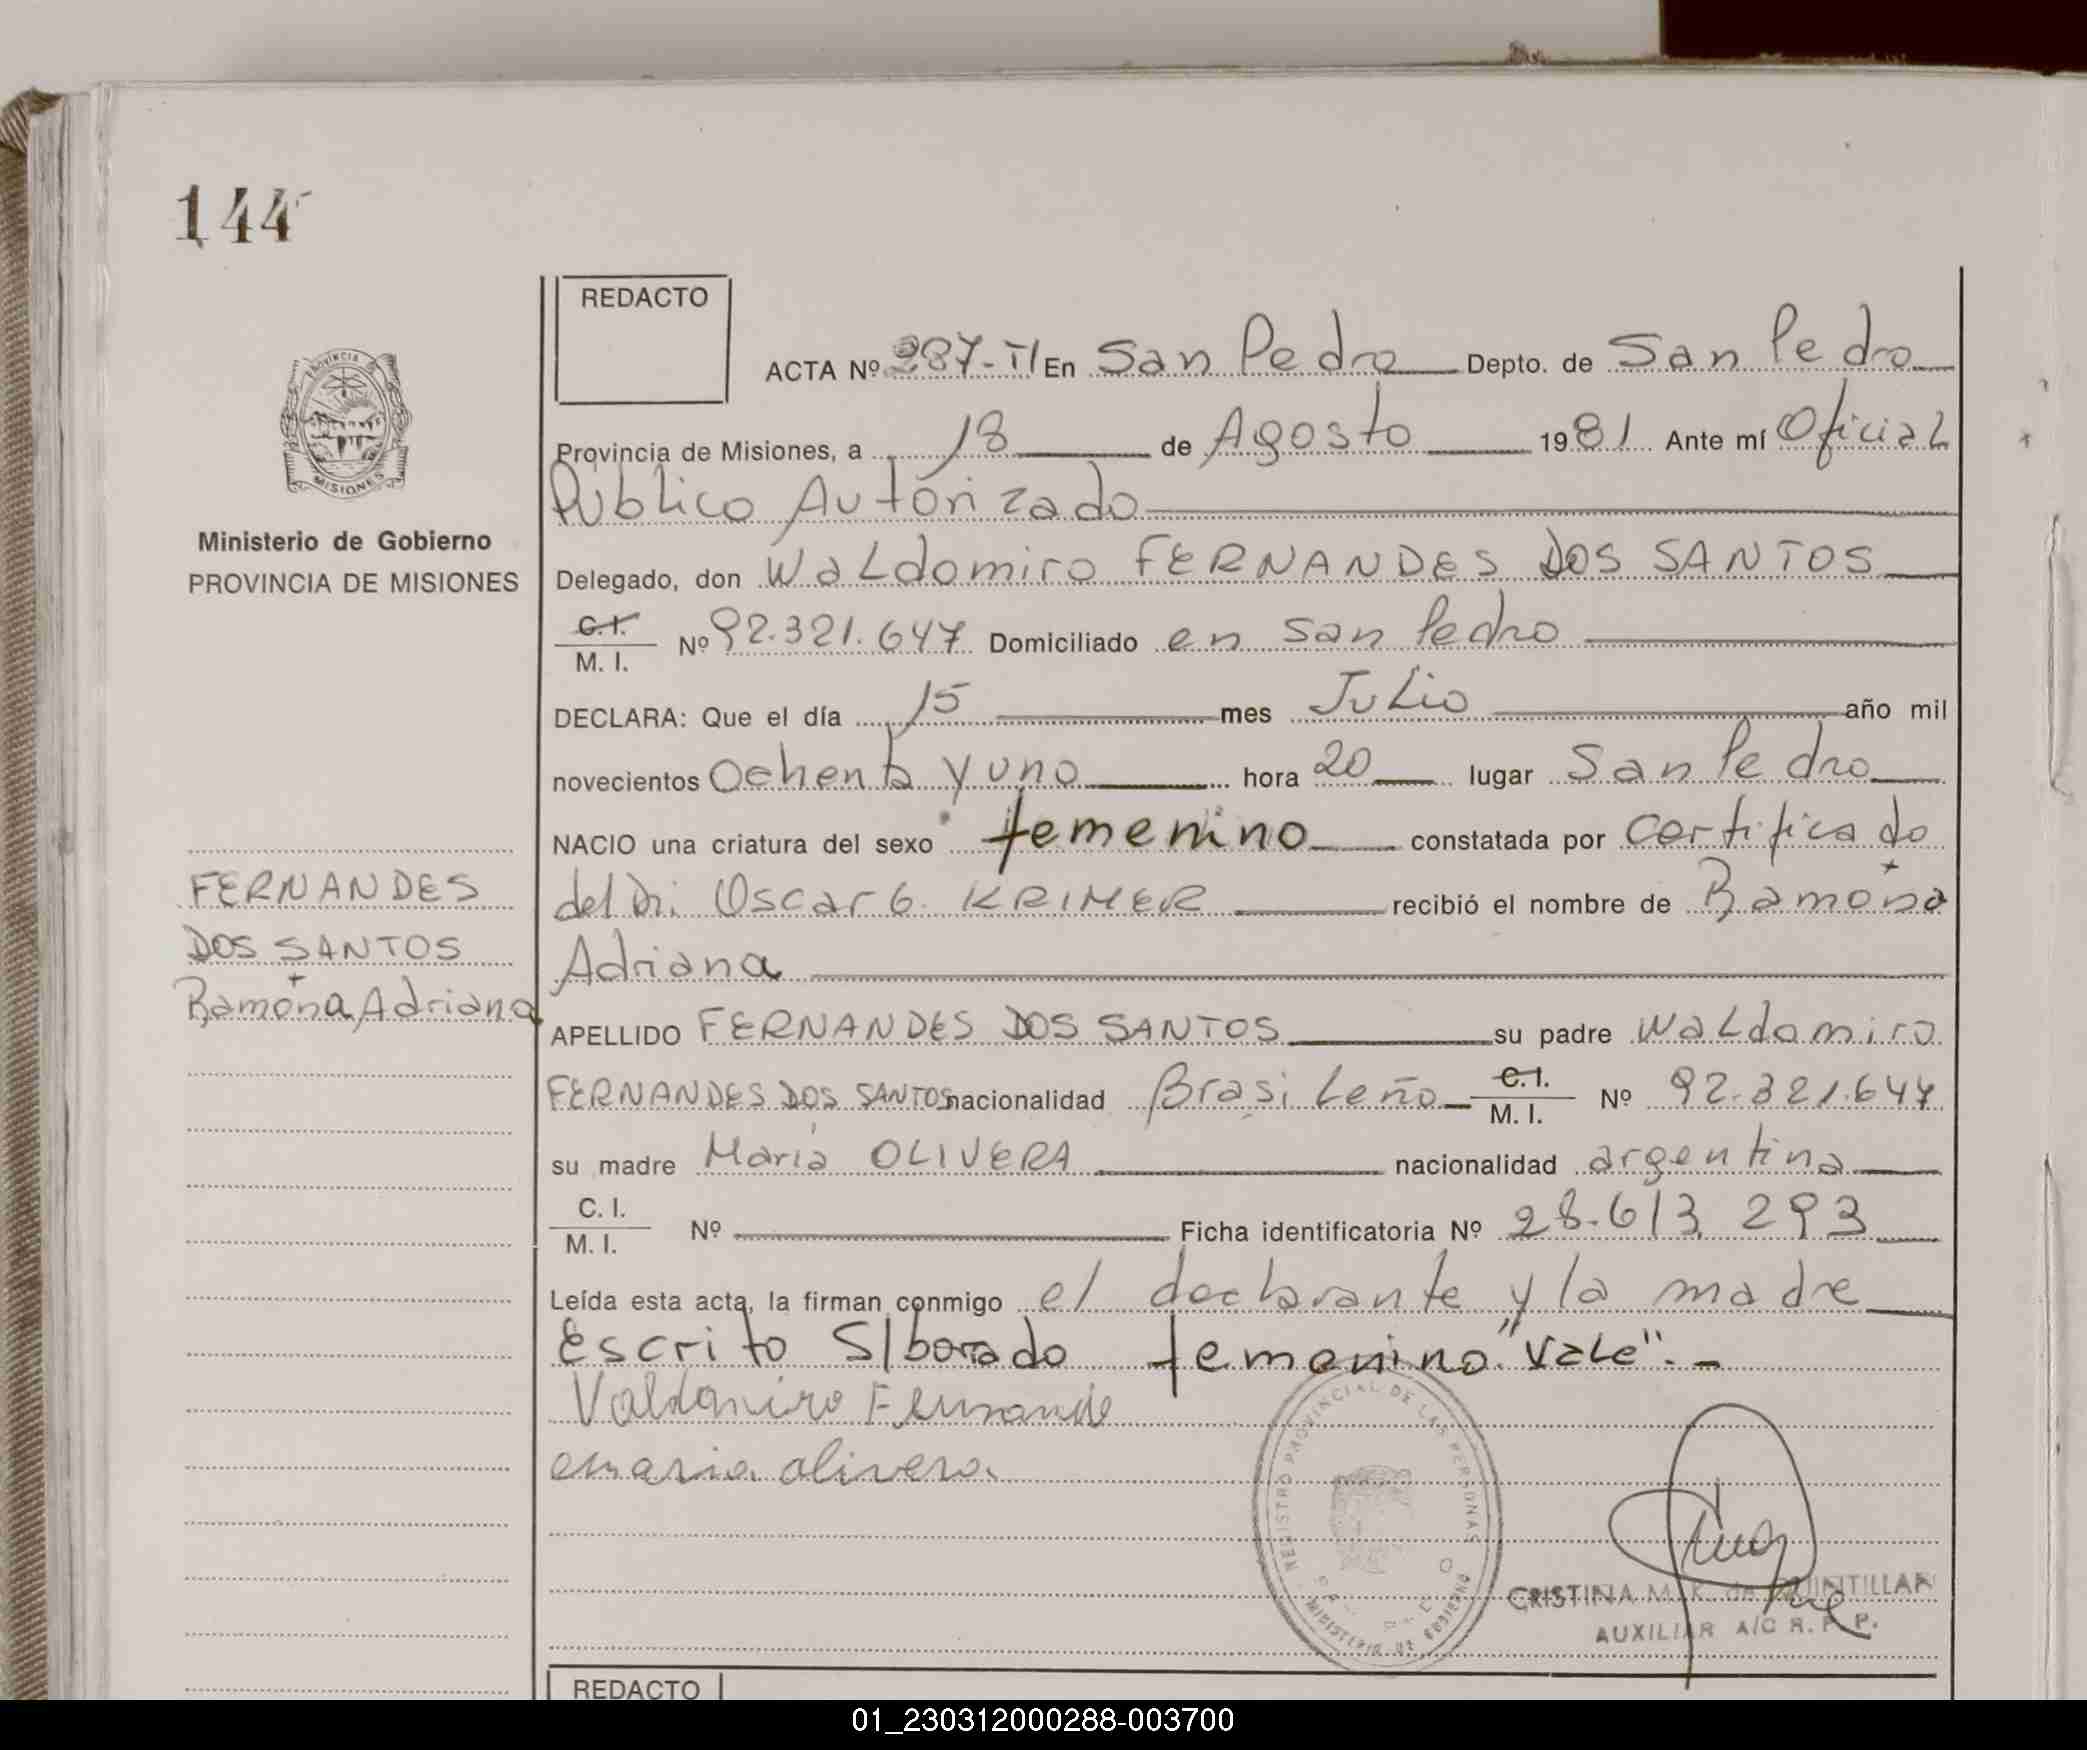 144
REDACTO
ACTA Nº 287-TI En San Pedro Depto. de San Pedro
Provincia de Misiones, a 18 de Agosto 1981 Ante mí Oficial
Público Autorizado
Delegado, don Waldomiro FERNANDES DOS SANTOS
C.I.
M. I. Nº 92.321.647 Domiciliado en San Pedro
DECLARA: Que el día 15 mes Julio año mil
novecientos Ochenta y uno hora 20 lugar San Pedro
NACIO una criatura del sexo femenino constatada por certificado
del Dr. Oscar G. KRIMER recibió el nombre de Ramona
Adriana
APELLIDO FERNANDES DOS SANTOS su padre Waldomiro
FERNANDES DOS SANTOS nacionalidad Brasileño C.I.
M. I. Nº 92.321.647
su madre María OLIVERA nacionalidad argentina
C. I.
M. I. Nº Ficha identificatoria Nº 28.613 293
Leída esta acta, la firman conmigo el declarante y la madre
Escrito S/borrado femenino "vale".-
Valdomiro Fernande
maria olivera
PROVINCIA
MISIONES
Ministerio de Gobierno
PROVINCIA DE MISIONES
FERNANDES
DOS SANTOS
Ramona Adriana
REGISTRO PROVINCIAL DE LAS PERSONAS
MINISTERIO DE GOBIERNO
CRISTINA M. K. de QUINTILLAN
AUXILIAR A/C R. P. P.
REDACTO
01_230312000288-003700